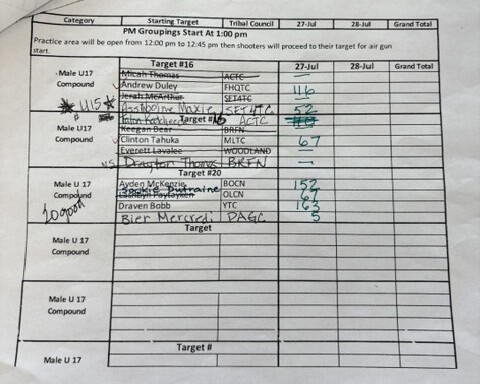 Category Starting Target Tribal Council 27-Jul 28-Jul Grand Total
PM Groupings Start At 1:00 pm
Practice area will be open from 12:00 pm to 12:45 pm then shooters will proceed to their target for air gun
start.
Target #16 27-Jul 28-Jul Grand Total
Male U17 Micah Thomas ACTC —
Compound Andrew Duley FHQTC 116
Jerah McArthur SET4TC —
U15 Maxie SET4TC 52
Target # ACTC
Male U17 Keegan Bear BRFN
Compound Clinton Tahuka MLTC 67
Everett Lavalee WOODLAND —
U15 Drayton Thomas BRFN —
Target #20
Male U 17 Ayden McKenzie BOCN 152
Compound OLCN 67
Draven Bobb YTC 163
Bier Mercredi PAGC 5
Target
Male U 17
Compound
Male U 17
Compound
Target #
Male U 17